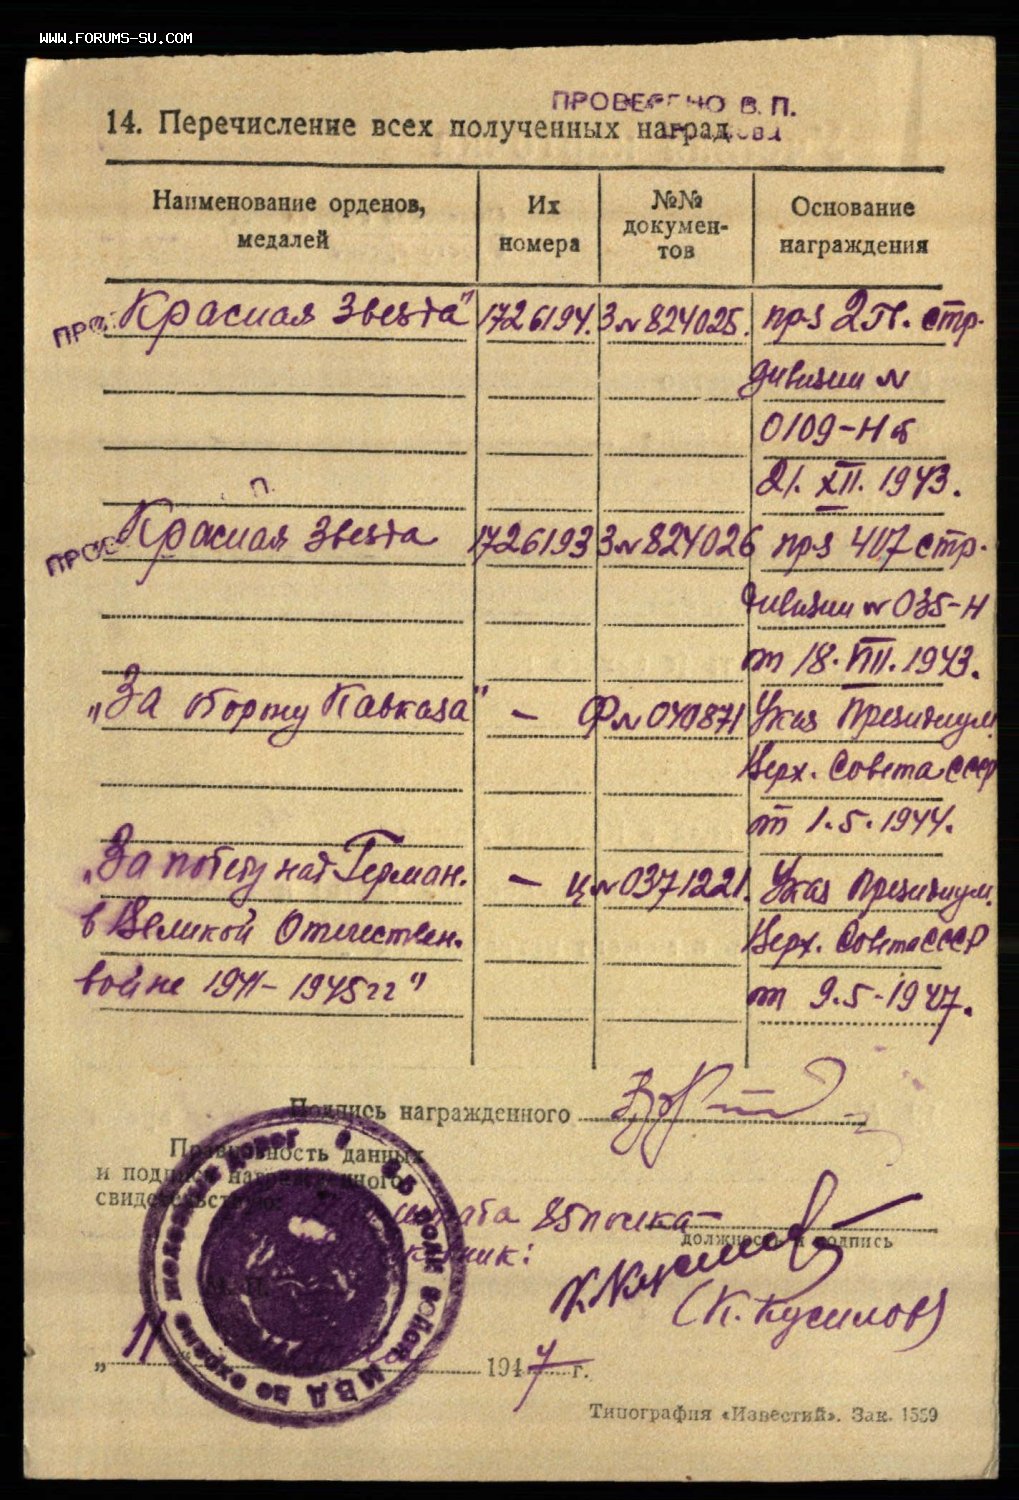 www.forums-su.com
ПРОВЕРЕНО В. П.
14. Перечисление всех полученных наград
Наименование орденов, медалей
Их номера
№№ документов
Основание награждения
Красная Звезда" 1726194. З № 824025. пр-з 2 гв. стр.
дивизии №
0109-Н от
21. XII. 1943.
Красная Звезда 1726193 З № 824026 пр-з 407 стр.
дивизии № 035-Н
от 18. VIII. 1943.
„За оборону Кавказа" — Ф № 040871 Указ Президиум.
Верх. Совета СССР
от 1.5.1944.
„За победу над Герман. — Ц № 0371221. Указ Президиум.
в Великой Отечествен. Верх. Совета СССР
войне 1941-1945 гг" от 9.5-1947.
Подпись награжденного
Правильность данных
и подписи награжденного
свидетельствую:
штаба 85 полка
должность и подпись
(К. Кусилов)
М. П.
„11 1947 г.
войск МВД по охране железных дорог
Типография «Известий». Зак. 1559